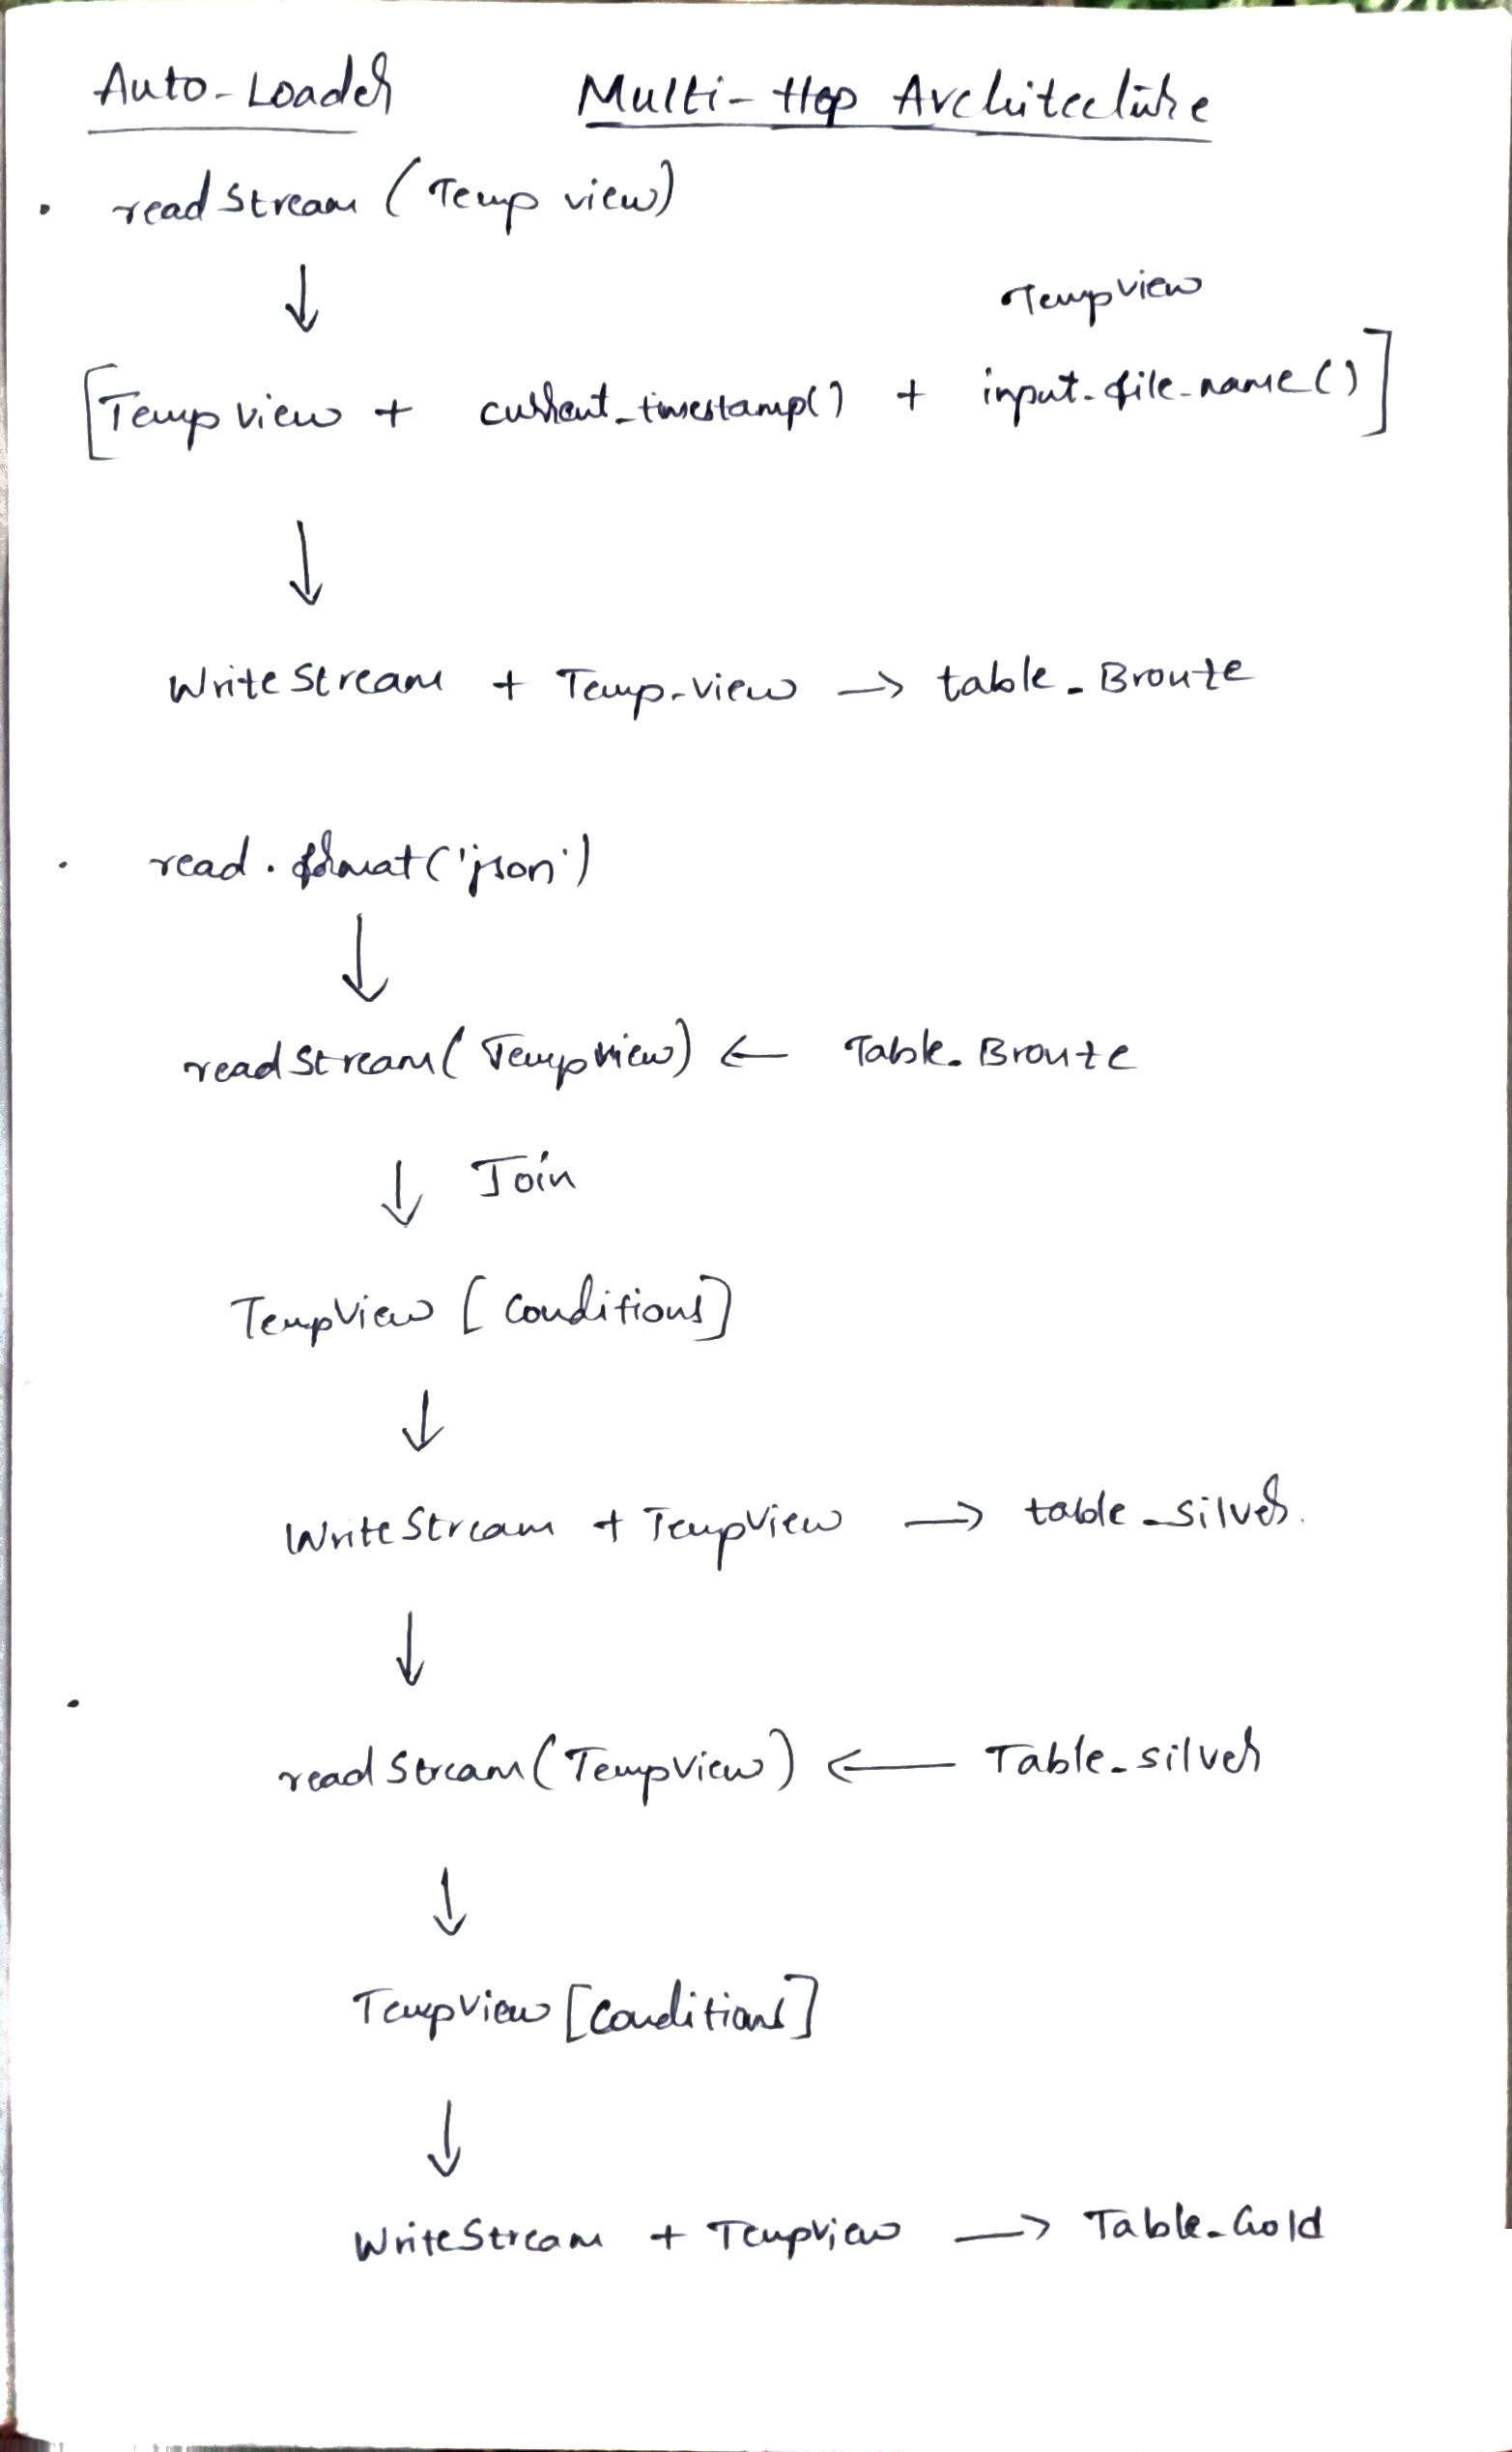 Auto-Loader Multi-Hop Architecture
. readStream (Temp view)
↓
Tempview
[Temp view + current_timestamp() + input_file_name()]
↓
WriteStream + Temp-view -> table_Bronze
. read.format('json')
↓
readStream(Tempview) <- Table_Bronze
↓ Join
TempView [Conditions]
↓
WriteStream + TempView -> table_silver.
↓
.
readStream(TempView) <- Table_silver
↓
TempView [Conditions]
↓
WriteStream + TempView -> Table_Gold